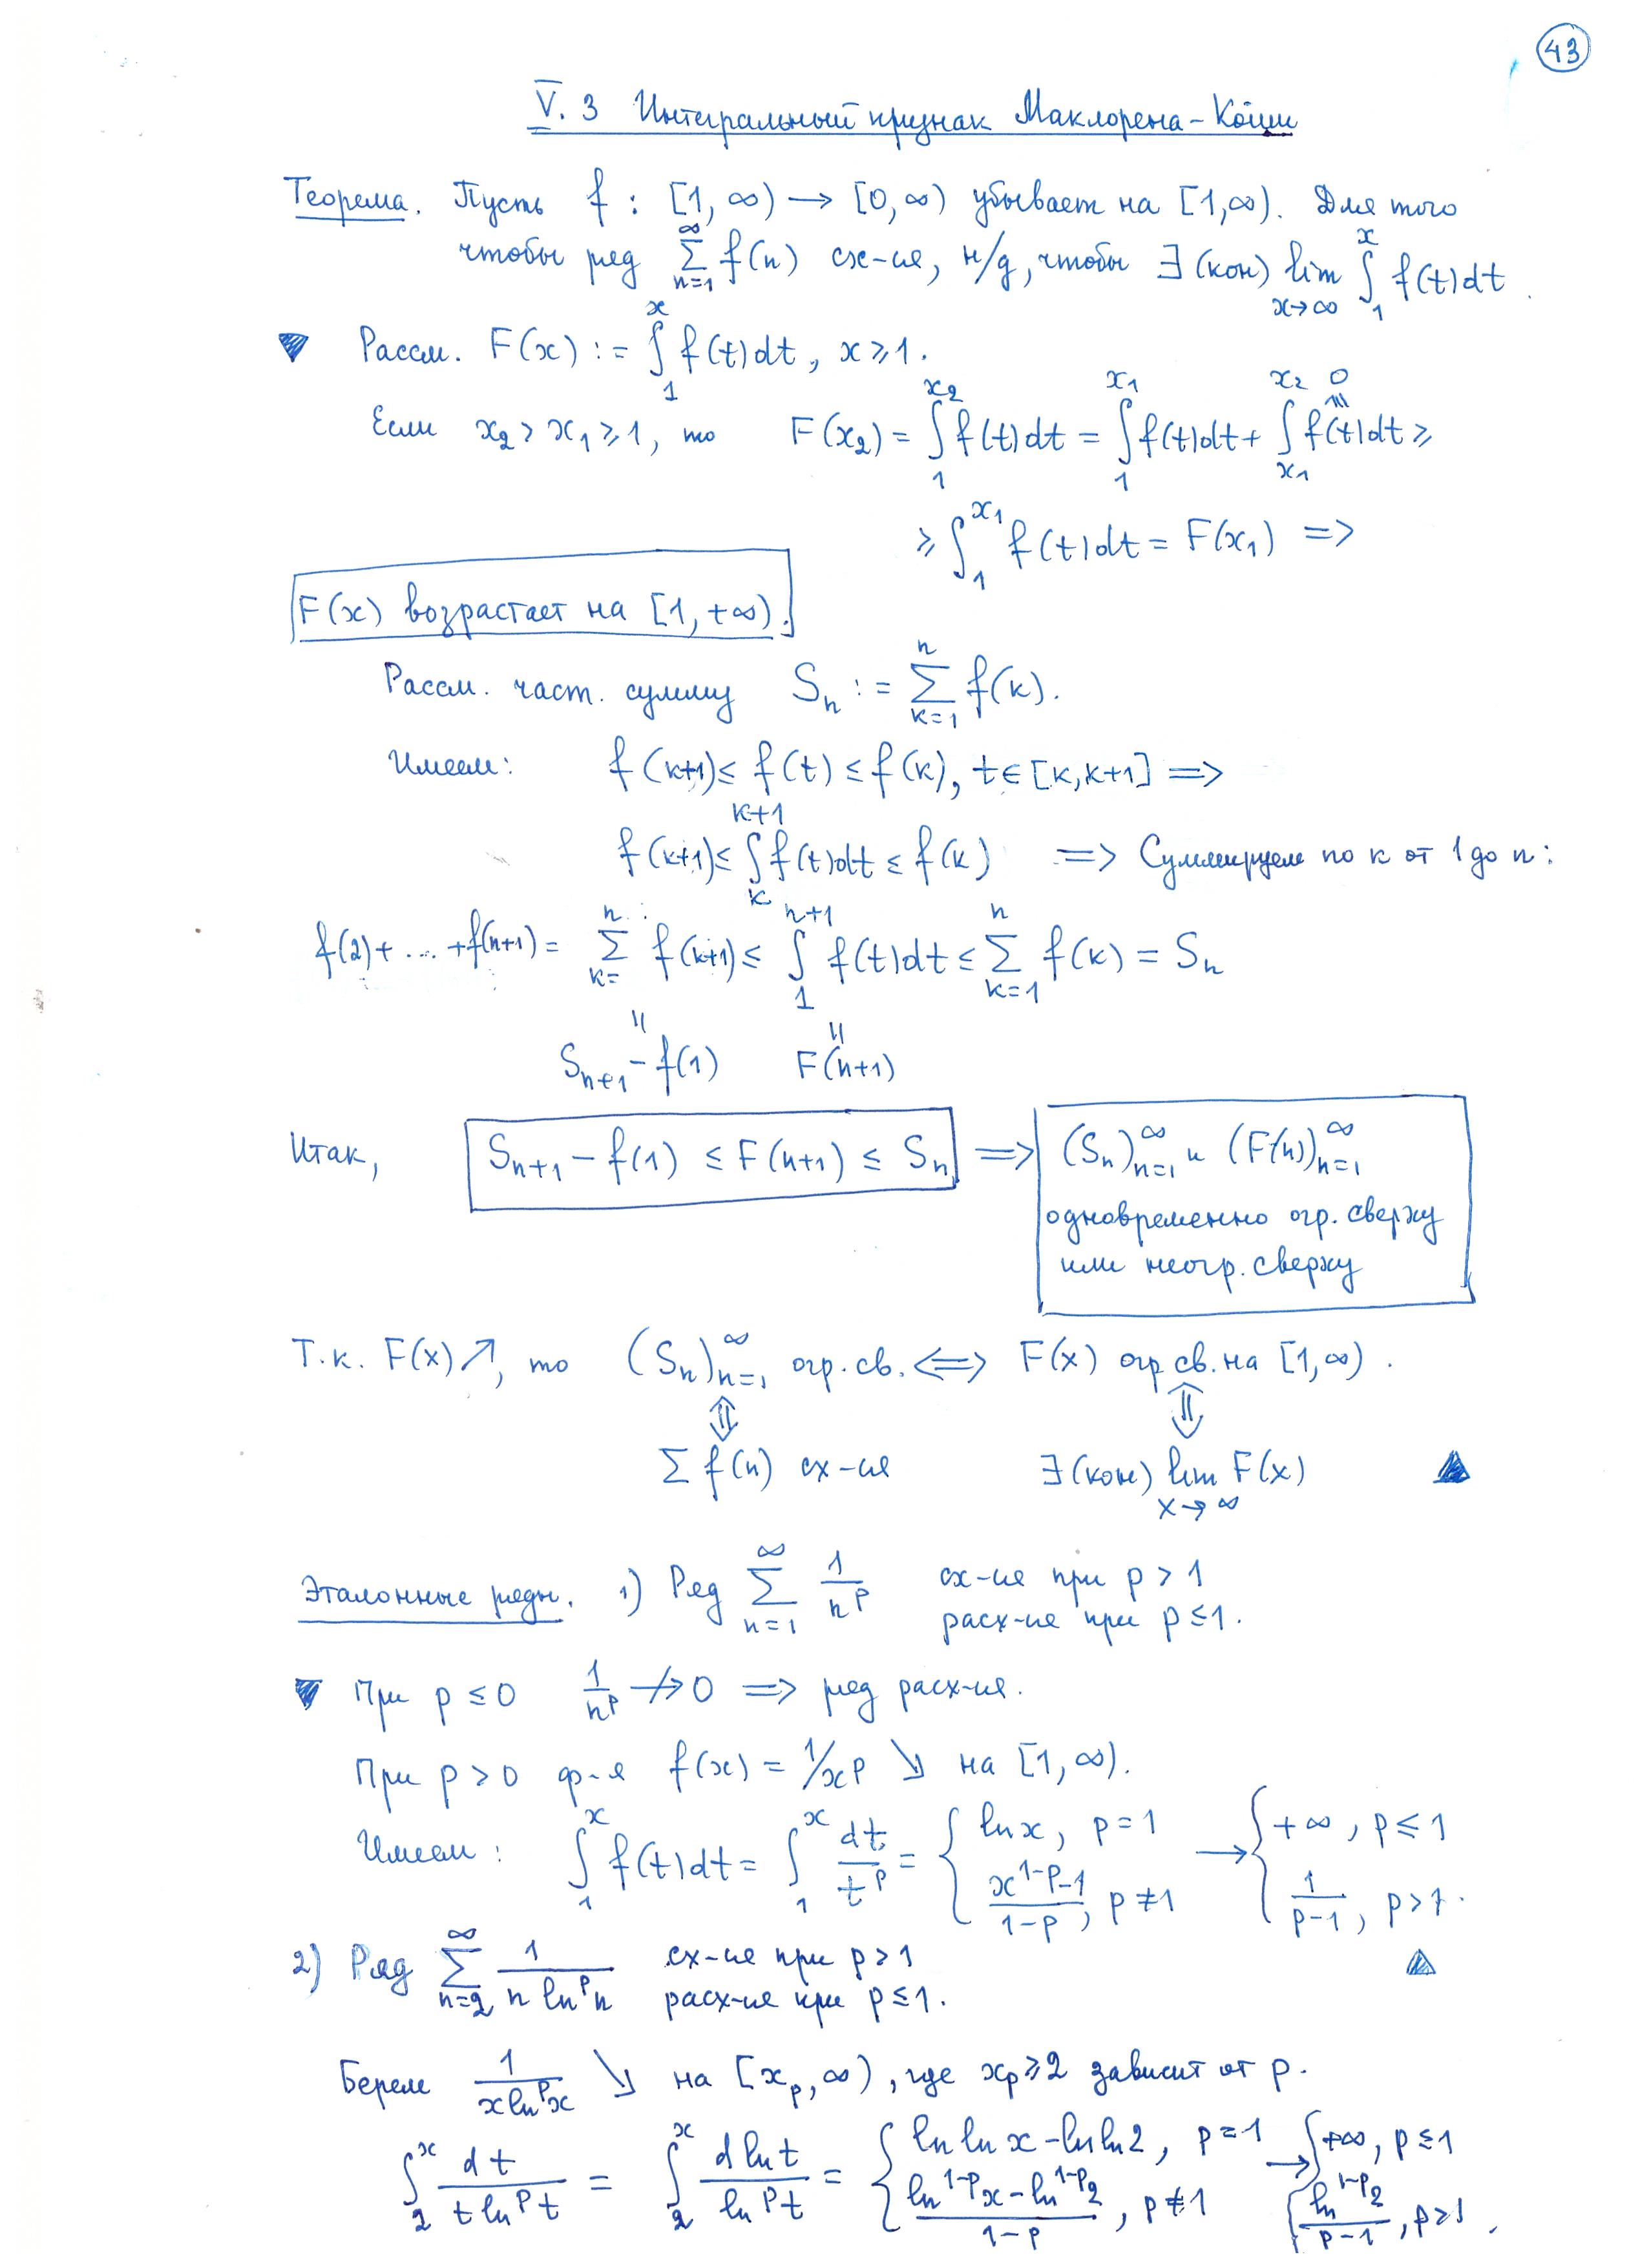 43
V. 3 Интегральный признак Маклорена – Коши
Теорема. Пусть f : [1, ∞) → [0, ∞) убывает на [1,∞). Для того
чтобы ряд ∑_{n=1}^{∞} f(n) сх-ся, н/д, чтобы ∃ (кон) lim_{x→∞} ∫_1^x f(t)dt.
▼ Рассм. F(x) := ∫_1^x f(t)dt, x ≥ 1.
Если x₂ > x₁ ≥ 1, то F(x₂) = ∫_1^{x₂} f(t)dt = ∫_1^{x₁} f(t)dt + ∫_{x₁}^{x₂} f(t)dt ≥
0
≥ ∫_1^{x₁} f(t)dt = F(x₁) =>
F(x) возрастает на [1, +∞).
Рассм. част. сумму Sₙ := ∑_{k=1}^{n} f(k).
Имеем: f(k+1) ≤ f(t) ≤ f(k), t ∈ [k, k+1] =>
f(k+1) ≤ ∫_k^{k+1} f(t)dt ≤ f(k) => Суммируем по k от 1 до n:
f(2) + ... + f(n+1) = ∑_{k=}^{n} f(k+1) ≤ ∫_1^{n+1} f(t)dt ≤ ∑_{k=1}^{n} f(k) = Sₙ
|| ||
S_{n+1} – f(1) F(n+1)
Итак, S_{n+1} – f(1) ≤ F(n+1) ≤ Sₙ => (Sₙ)_{n=1}^{∞} и (F(n))_{n=1}^{∞}
одновременно огр. сверху
или неогр. сверху
Т.к. F(x)↗, то (Sₙ)_{n=1}^{∞} огр. св. <=> F(x) огр св. на [1, ∞).
⇕ ⇕
∑ f(n) сх-ся ∃ (кон) lim_{x→∞} F(x) ▲
Эталонные ряды. 1) Ряд ∑_{n=1}^{∞} 1/n^p сх-ся при p > 1
расх-ся при p ≤ 1.
▼ При p ≤ 0 1/n^p ↛ 0 => ряд расх-ся.
При p > 0 ф-я f(x) = 1/x^p ↘ на [1, ∞).
Имеем: ∫_1^x f(t)dt = ∫_1^x dt/t^p = { ln x, p = 1; (x^{1-p} - 1)/(1-p), p ≠ 1 → { +∞, p ≤ 1; 1/(p-1), p > 1.
▲
2) Ряд ∑_{n=2}^{∞} 1/(n ln^p n) сх-ся при p > 1
расх-ся при p ≤ 1.
Берем 1/(x ln^p x) ↘ на [x_p, ∞), где x_p ≥ 2 зависит от p.
∫_2^x dt/(t ln^p t) = ∫_2^x d ln t/(ln^p t) = { ln ln x – ln ln 2, p = 1; (ln^{1-p} x – ln^{1-p} 2)/(1-p), p ≠ 1 → { +∞, p ≤ 1; ln^{1-p} 2/(p-1), p > 1.